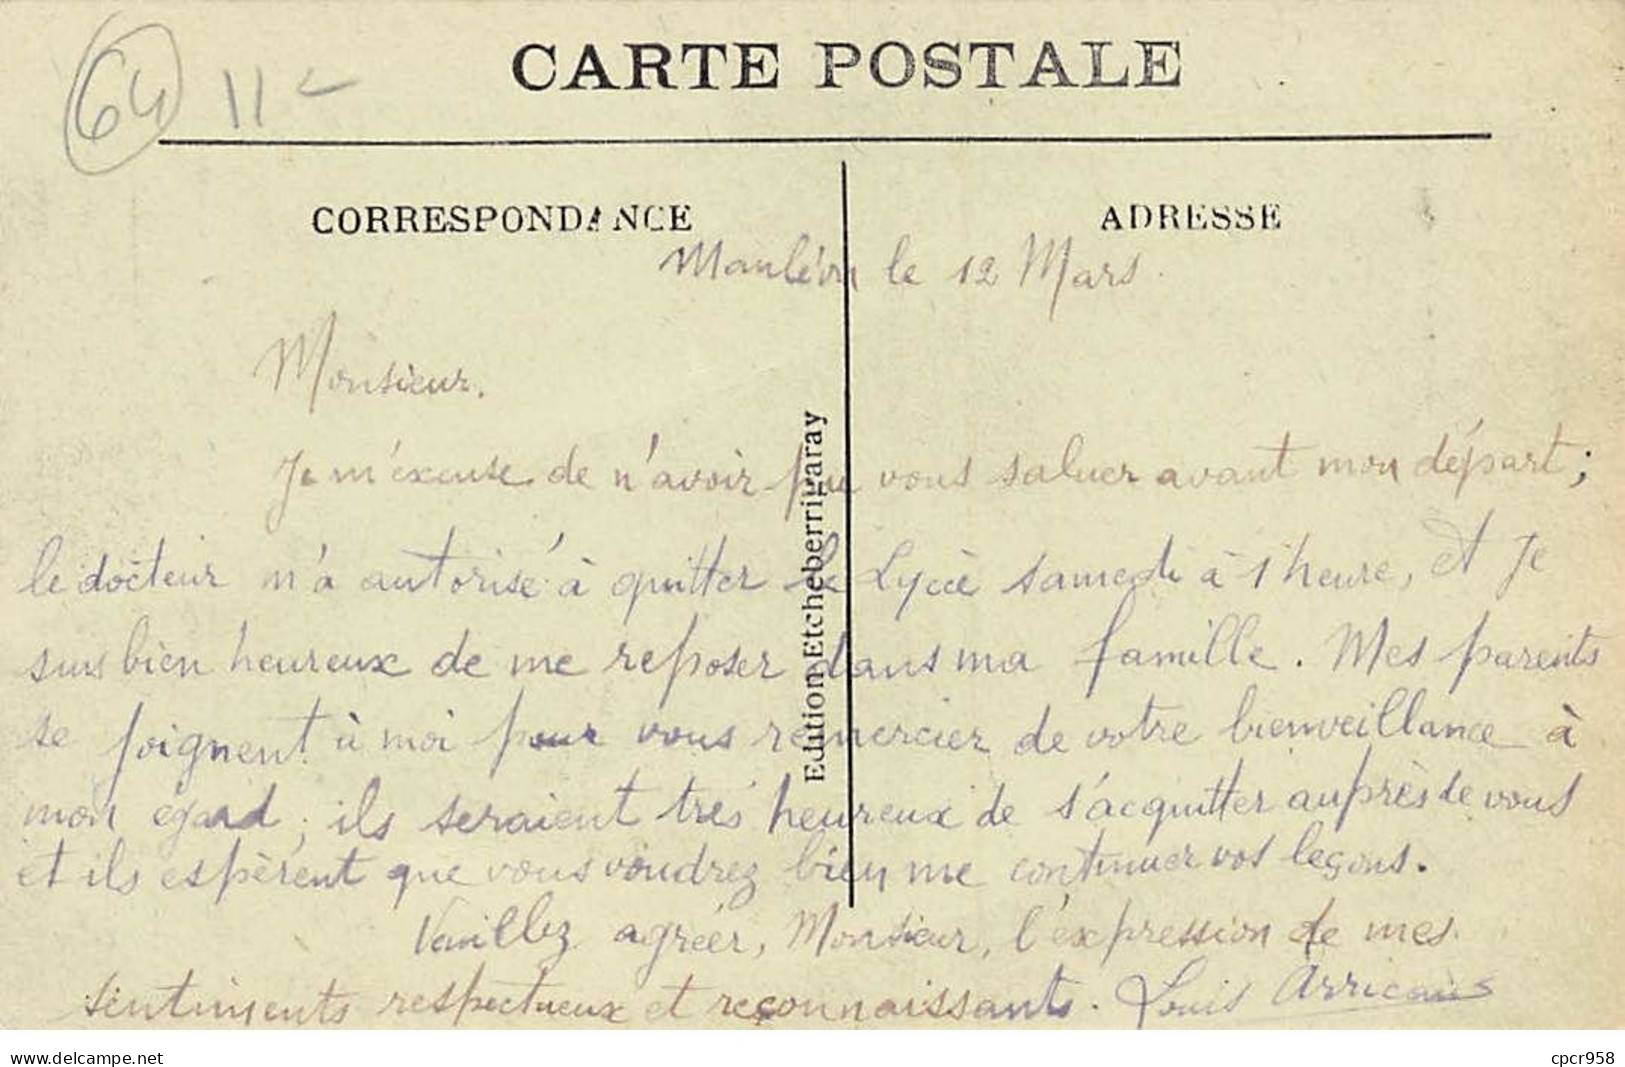 64 11-
CARTE POSTALE
CORRESPONDANCE
ADRESSE
Mauléon le 12 Mars.
Monsieur.
Je m'excuse de n'avoir pu vous saluer avant mon départ;
le docteur m'a autorisé à quitter le Lycée samedi à 1 heure, et je
suis bien heureux de me reposer dans ma famille. Mes parents
se joignent à moi pour vous remercier de votre bienveillance à
mon égard; ils seraient très heureux de s'acquitter auprès de vous
et ils espèrent que vous voudrez bien me continuer vos leçons.
Veuillez agréer, Monsieur, l'expression de mes
sentiments respectueux et reconnaissants. Louis
Edition Etcheberrigaray
delcampe.net
cpcr958